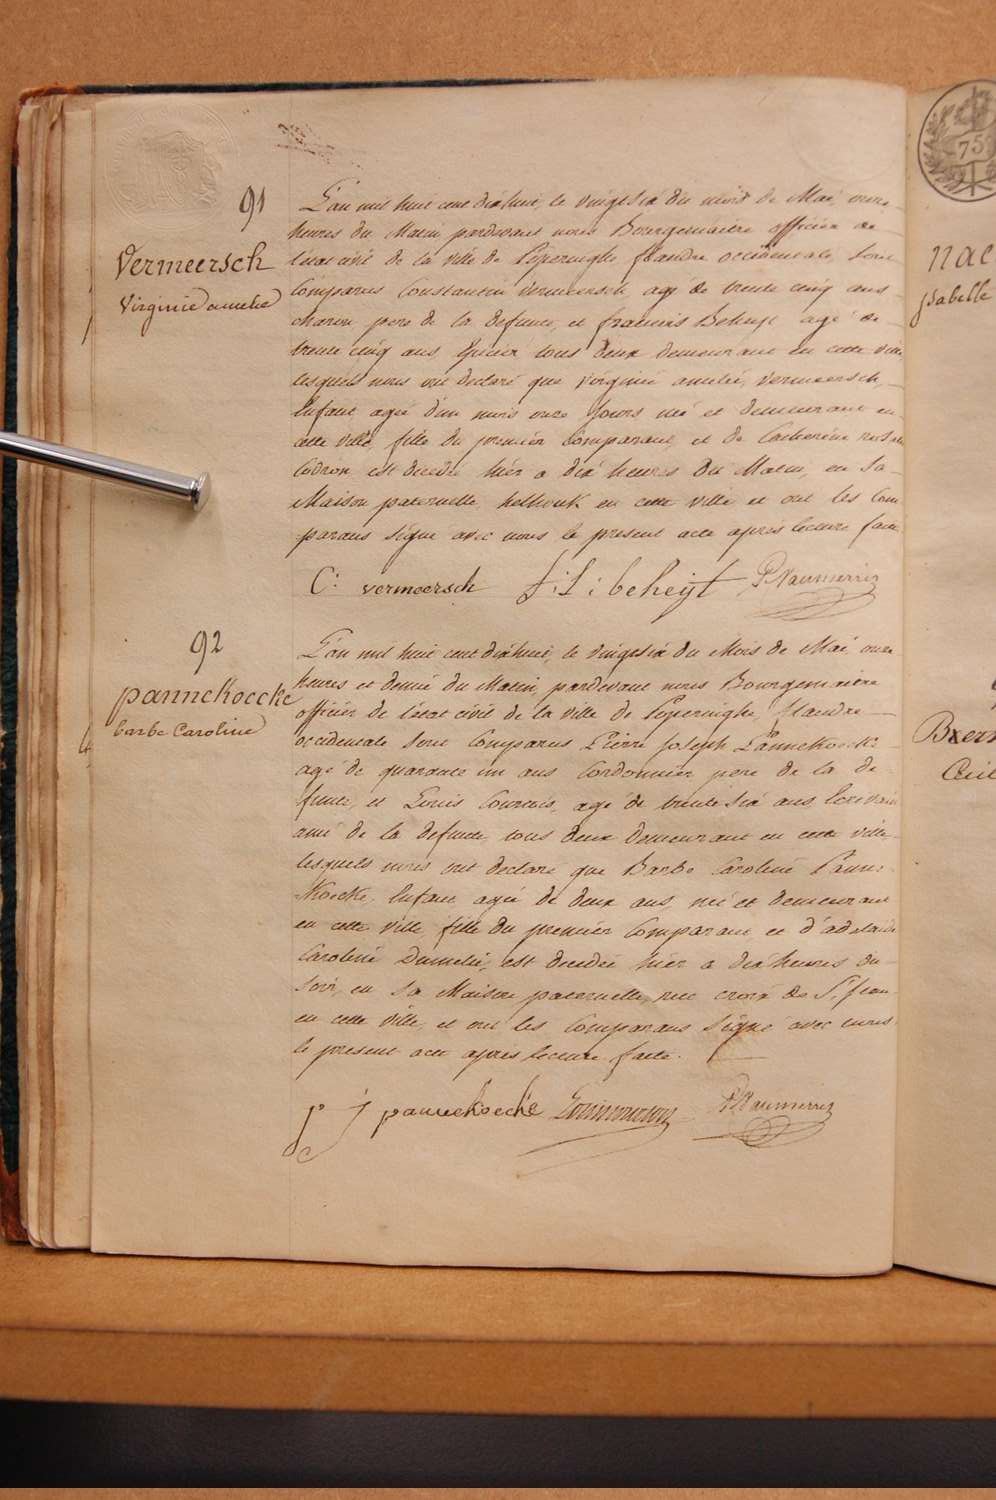 91
Vermeersch
Virginie amelie
L'an mil huit cent dixhuit, le vingtsix du mois de Mai, onze
heures du Matin pardevant nous Bourgemaitre officier de
l'etat civil de la ville de Poperinghe flandre occidentale, sont
Comparus Constantin Vermeersch agé de trente cinq ans
charon pere de la defunte, et francois Beheyt agé de
trente cinq ans, Epicier tous deux demeurant en cette ville
lesquels nous ont declaré que Virginie amelie, Vermeersch,
Enfant, agée d'un mois onze jours née et demeurant en
cette ville, fille du premier Comparant, et de Catherine
Cudron est decedée hier a dix heures du Matin, en sa
Maison paternelle, helhouk en cette ville et ont les Com
parans signé avec nous le present acte après lecture faite.
C: vermeersch f: L: beheijt
92
pannekoecke
barbe Caroline
L'an mil huit cent dixhuit, le vingtsix du Mois de Mai, onze
heures et demie du Matin, pardevant nous Bourgemaitre
officier de l'état civil de la ville de Poperinghe, flandre
occidentale sont Comparus Pierre Joseph Pannekoecke
agé de quarante un ans Cordonnier pere de la de
funte, et Louis Courtois, agé de trentesix ans Ecrivain
ami de la defunte, tous deux Demeurant en cette ville
lesquels nous ont declaré que Barbe Caroline Panne
Koecke, Enfant agée de deux ans, née et demeurant
en cette ville fille du premier Comparant et d'adelaide
Caroline Dumelie, est decedée hier a dix heures du
soir, en sa Maison paternelle, rue croix de St jean
en cette ville, et ont les Comparans signé avec nous
le present acte après lecture faite.
p J pannekoecke
75
nae
ysabelle